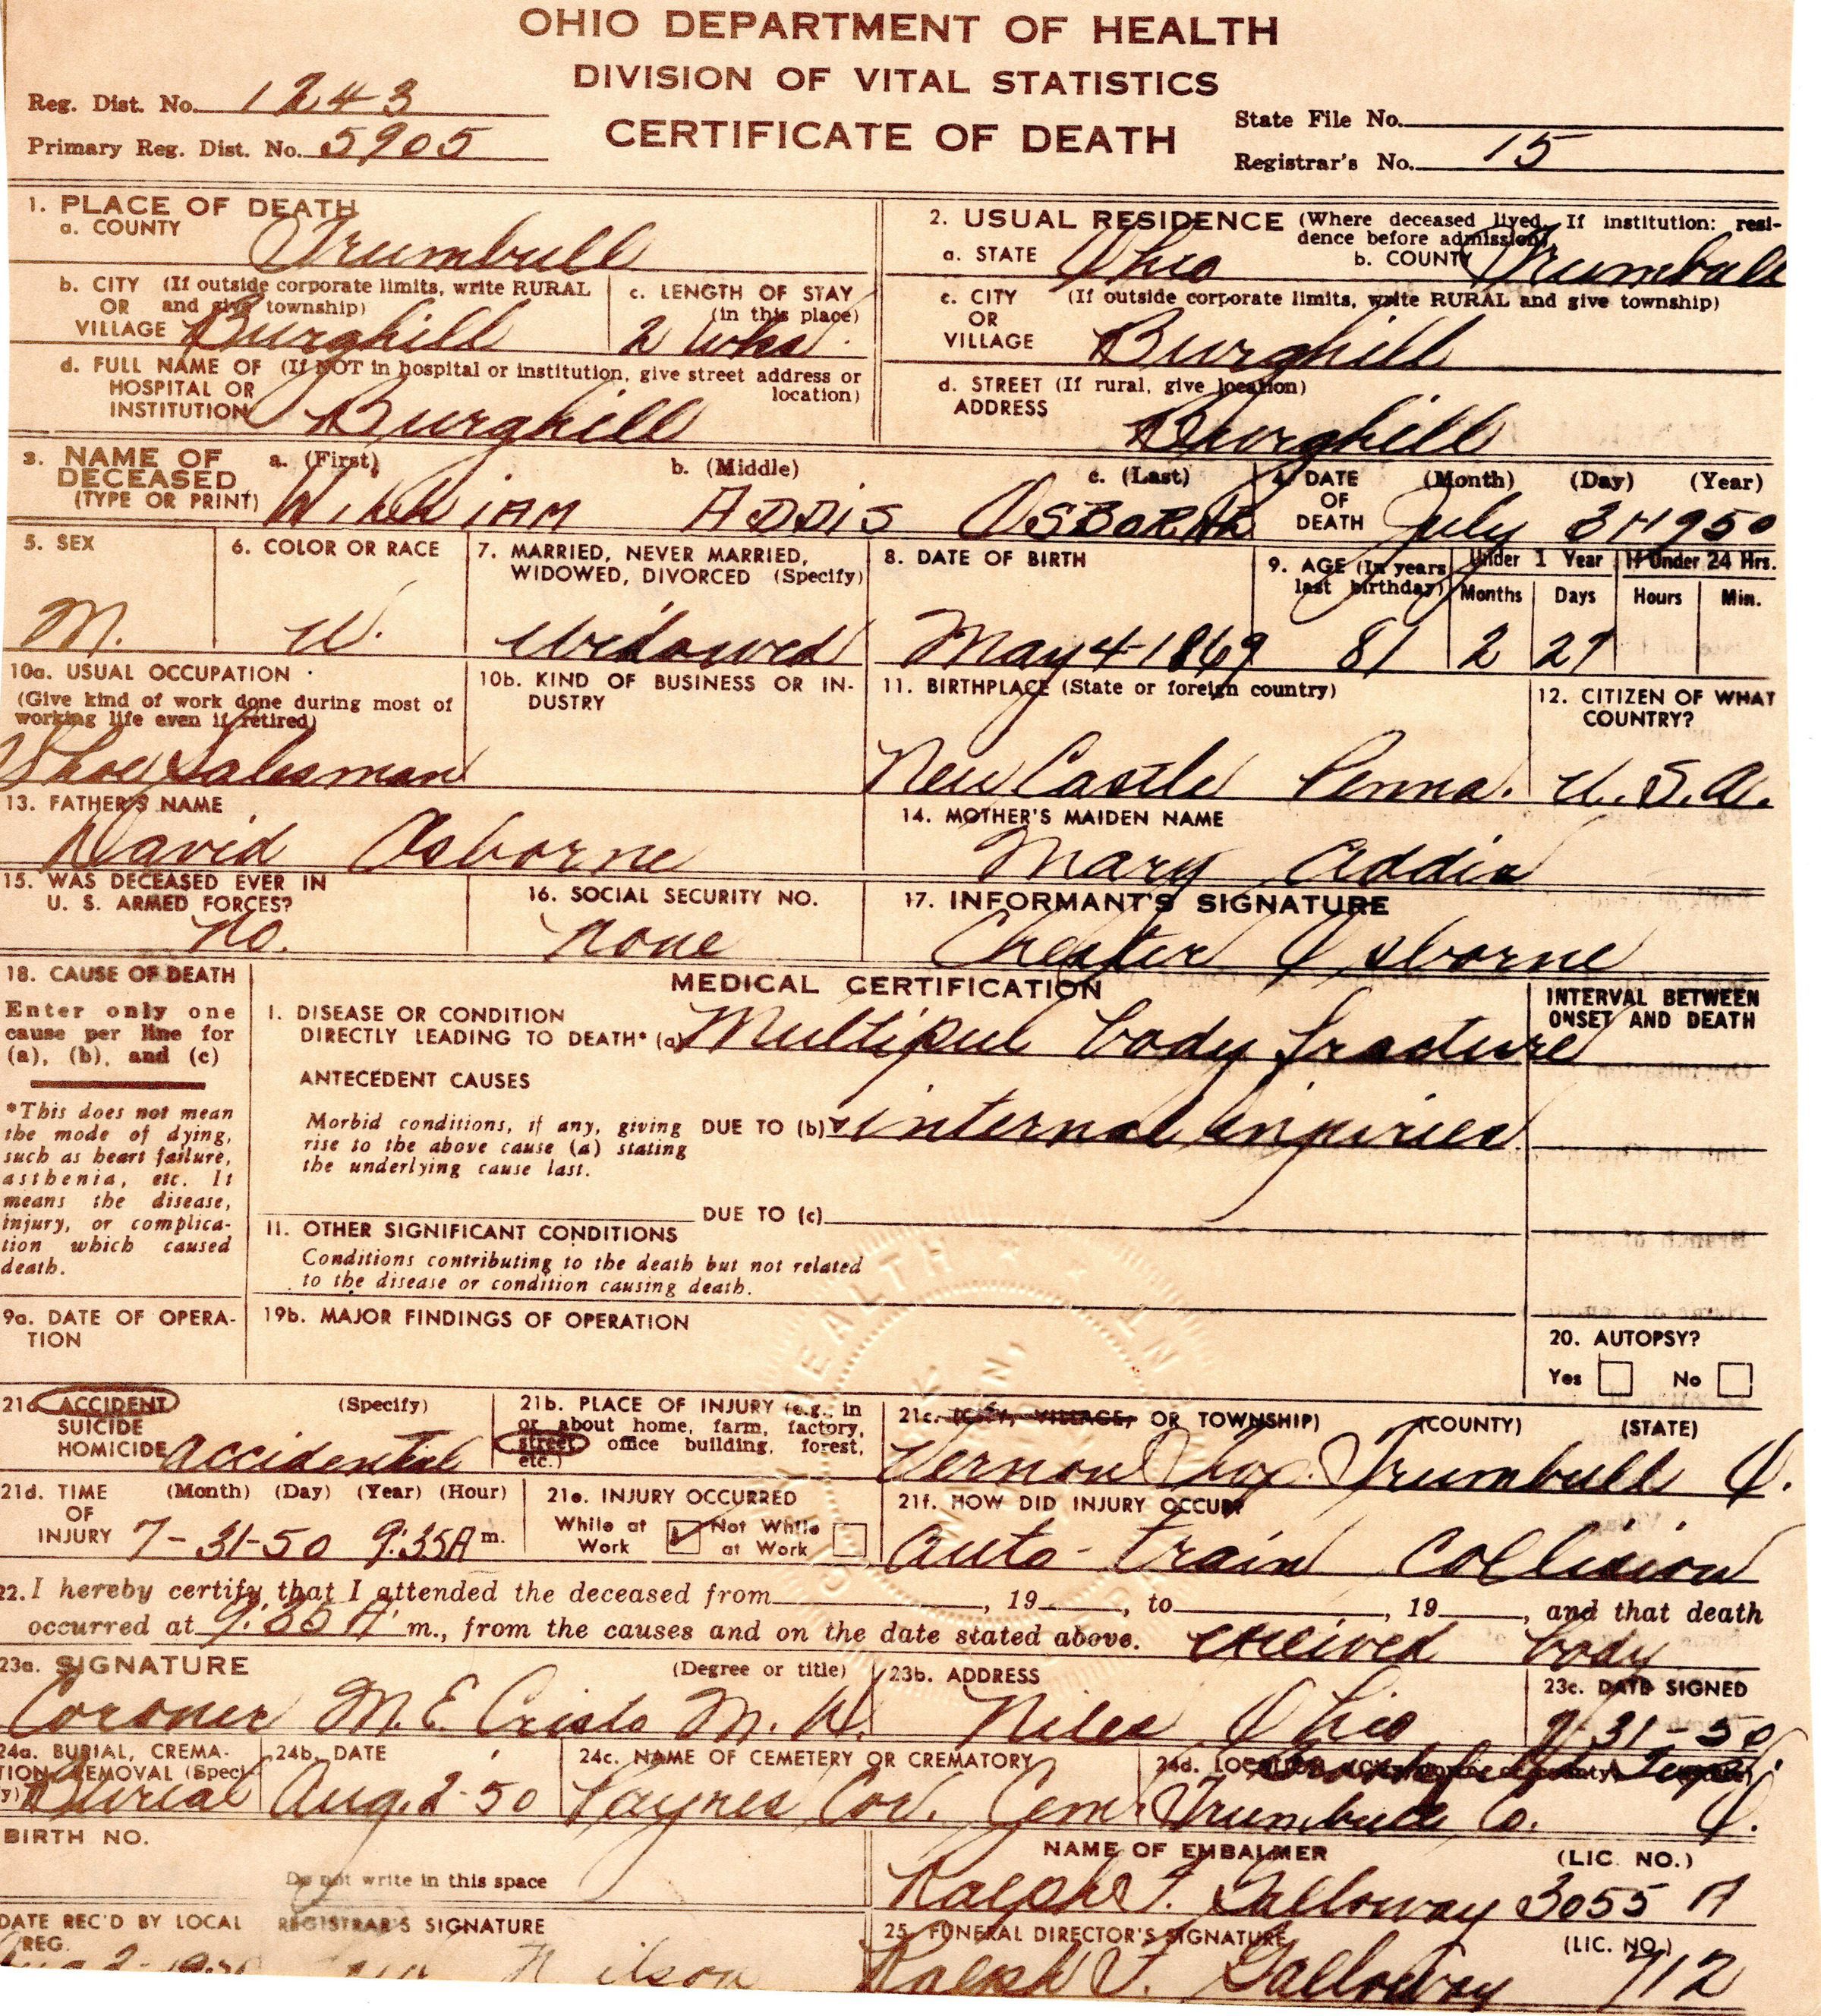 OHIO DEPARTMENT OF HEALTH
DIVISION OF VITAL STATISTICS
CERTIFICATE OF DEATH
Reg. Dist. No. 1243
Primary Reg. Dist. No. 5905
State File No.
Registrar's No. 15
1. PLACE OF DEATH
a. COUNTY Trumbull
b. CITY (If outside corporate limits, write RURAL
OR and give township)
VILLAGE Burghill
c. LENGTH OF STAY
(in this place)
2 wks.
d. FULL NAME OF (If NOT in hospital or institution, give street address or
HOSPITAL OR location)
INSTITUTION Burghill
2. USUAL RESIDENCE (Where deceased lived. If institution: resi-
dence before admission)
a. STATE Ohio b. COUNTY Trumbull
c. CITY (If outside corporate limits, write RURAL and give township)
OR
VILLAGE Burghill
d. STREET (If rural, give location)
ADDRESS
Burghill
3. NAME OF a. (First) b. (Middle) c. (Last)
DECEASED
(TYPE OR PRINT) William ADDIS OSBORNE
4. DATE (Month) (Day) (Year)
OF
DEATH July 31 1950
5. SEX
M.
6. COLOR OR RACE
W.
7. MARRIED, NEVER MARRIED,
WIDOWED, DIVORCED (Specify)
Widowed
8. DATE OF BIRTH
May 4-1869
9. AGE (In years
last birthday)
81
Under 1 Year
Months Days
2 27
If Under 24 Hrs.
Hours Min.
10a. USUAL OCCUPATION
(Give kind of work done during most of
working life even if retired)
Shoe Salesman
10b. KIND OF BUSINESS OR IN-
DUSTRY
11. BIRTHPLACE (State or foreign country)
New Castle Penna.
12. CITIZEN OF WHAT
COUNTRY?
U. S. A.
13. FATHER'S NAME
David Osborne
14. MOTHER'S MAIDEN NAME
Mary Addis
15. WAS DECEASED EVER IN
U. S. ARMED FORCES?
No.
16. SOCIAL SECURITY NO.
None
17. INFORMANT'S SIGNATURE
Chester Osborne
18. CAUSE OF DEATH
Enter only one
cause per line for
(a), (b), and (c)
*This does not mean
the mode of dying,
such as heart failure,
asthenia, etc. It
means the disease,
injury, or complica-
tion which caused
death.
MEDICAL CERTIFICATION
INTERVAL BETWEEN
ONSET AND DEATH
I. DISEASE OR CONDITION
DIRECTLY LEADING TO DEATH* (a) Multipul body fracture
ANTECEDENT CAUSES
Morbid conditions, if any, giving DUE TO (b) internal injuries
rise to the above cause (a) stating
the underlying cause last.
DUE TO (c)
II. OTHER SIGNIFICANT CONDITIONS
Conditions contributing to the death but not related
to the disease or condition causing death.
9a. DATE OF OPERA-
TION
19b. MAJOR FINDINGS OF OPERATION
20. AUTOPSY?
Yes No
21a ACCIDENT (Specify)
SUICIDE
HOMICIDE accidental
21b. PLACE OF INJURY (e.g., in
or about home, farm, factory,
street office building, forest,
etc.)
21c. (CITY, VILLAGE, OR TOWNSHIP) (COUNTY) (STATE)
Vernon Twp. Trumbull O.
21d. TIME (Month) (Day) (Year) (Hour)
OF
INJURY 7-31-50 9:35A m.
21e. INJURY OCCURRED
While at Not While
Work at Work
21f. HOW DID INJURY OCCUR?
auto-train collision
22. I hereby certify that I attended the deceased from , 19 , to , 19 , and that death
occurred at 9:35 A m., from the causes and on the date stated above. body
23a. SIGNATURE (Degree or title)
Coroner M. E.
23b. ADDRESS
Niles Ohio
23c. DATE SIGNED
7-31-50
24a. BURIAL, CREMA-
TION, REMOVAL (Speci-
y) Burial
24b. DATE
Aug. 2-50
24c. NAME OF CEMETERY OR CREMATORY
Paynes Cor. Cem.
24d. LOCATION
Trumbull Co. O.
BIRTH NO.
Do not write in this space
NAME OF EMBALMER (LIC. NO.)
Ralph F. Galloway 3055 A
DATE REC'D BY LOCAL
REG.
REGISTRAR'S SIGNATURE
25. FUNERAL DIRECTOR'S SIGNATURE (LIC. NO.)
Ralph F. Galloway 712